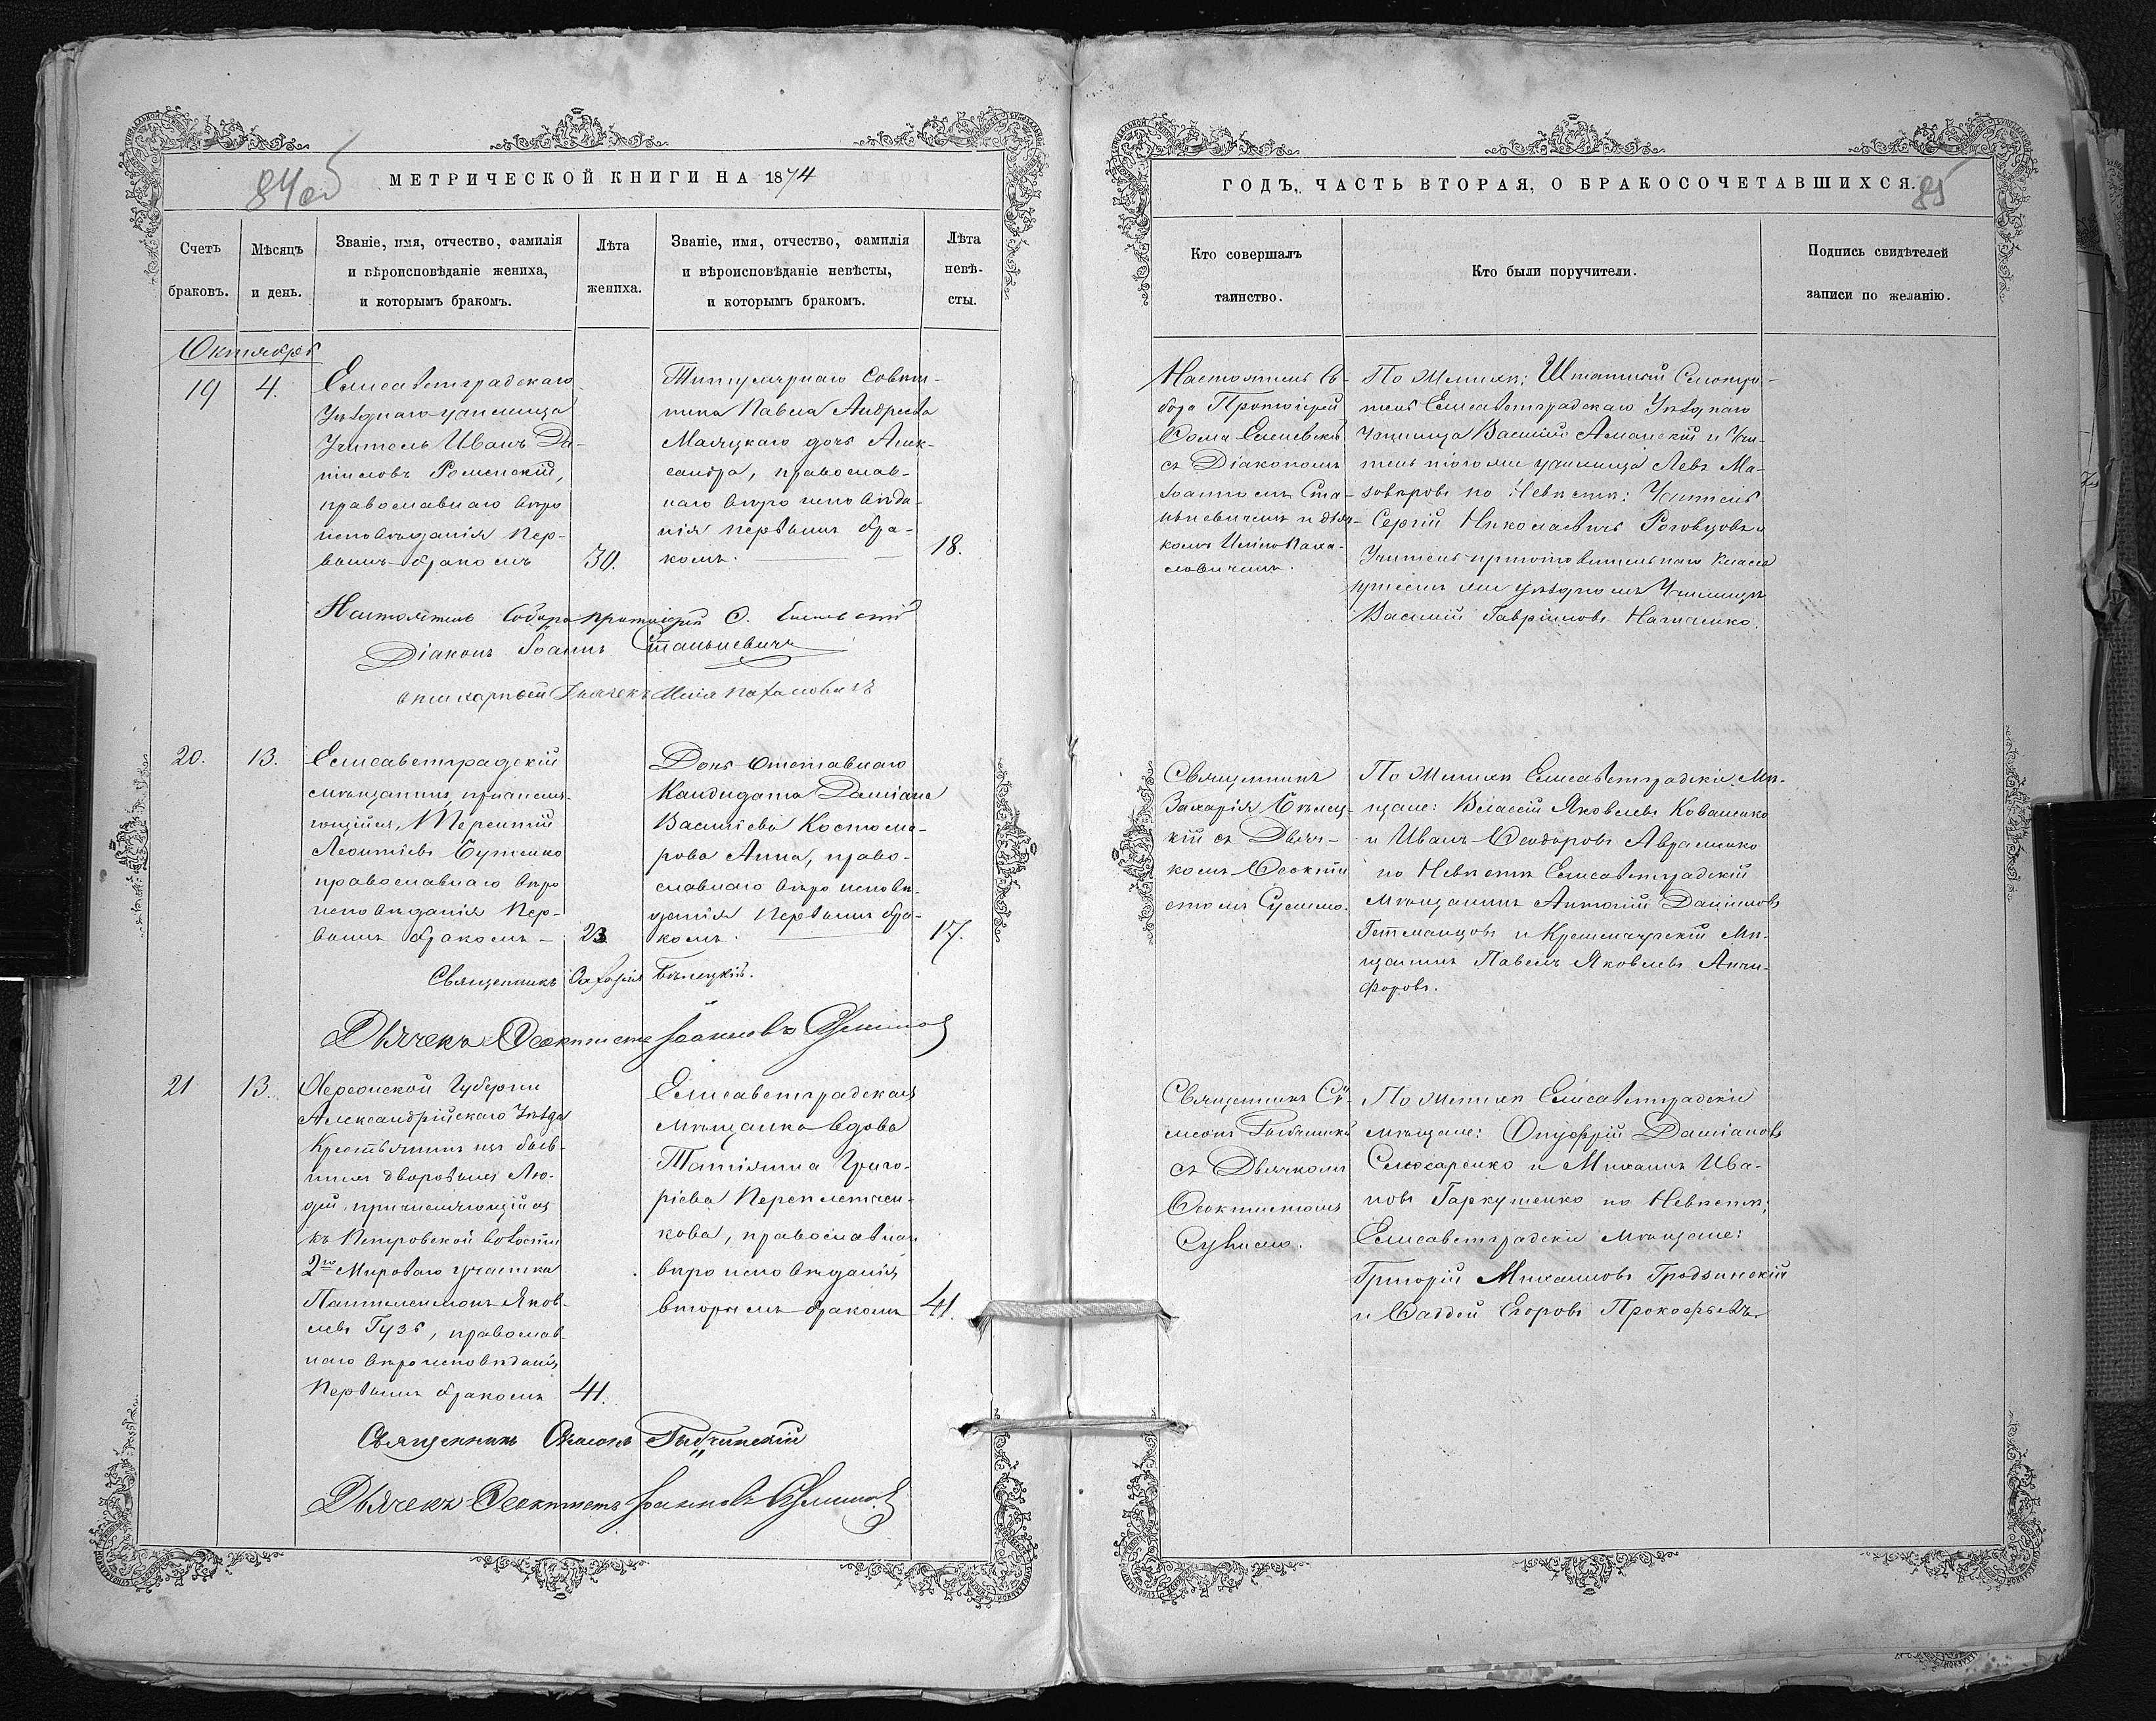 84об
МЕТРИЧЕСКОЙ КНИГИ НА 1874
Счетъ браковъ.
Мѣсяцъ и день.
Званіе, имя, отчество, фамилія
и вѣроисповѣданіе жениха,
и которымъ бракомъ.
Лѣта
жениха.
Званіе, имя, отчество, фамилія
и вѣроисповѣданіе невѣсты,
и которымъ бракомъ.
Лѣта
невѣ-
сты.
Октябрь
19
4.
Елисаветградскаго
Уѣзднаго училища
Учитель Иванъ Да-
ниловъ Роменскій,
православнаго вѣро
исповѣданія Пер-
вымъ бракомъ
30.
Титулярнаго Совѣт-
ника Павла Андреева
Маяцкаго дочь Алек-
сандра, православ-
наго вѣро исповѣда-
нія первымъ бра-
комъ.
18.
Настоятель Собора протоіерей
Діаконъ Іоаннъ Станкевичъ
20.
13.
Елисаветградскій
мѣщанинъ, причисля-
ющійся, Терентій
Леонтіевъ Бутенко
православнаго вѣро
исповѣданія Пер-
вымъ бракомъ
23.
Дочь отставнаго
Кандидата Даміана
Василіева Костома-
рова Анна, право-
славнаго вѣро исповѣ-
данія первымъ бра-
комъ.
17.
Священникъ Захарія Бѣлецкій.
Дьячекъ Ѳеоктистъ Іоакимовъ
21
13.
Херсонской Губерніи
Александрійскаго Уѣзда
Крестьянинъ изъ быв-
шихъ дворовыхъ Лю-
дей, причисляющійся
къ Петровской волости
2го Мироваго участка
Пантелеимонъ Яков-
левъ Гузь, православ
наго вѣроисповѣданія
Первымъ бракомъ
41.
Елисаветградская
мѣщанка вдова
Татіянна Григо-
ріева Переплетчен-
кова, православнаго
вѣро исповѣданія
вторымъ бракомъ
41.
Священникъ Сѵмеонъ
Дьячекъ Ѳеоктистъ Іоакимовъ
85
ГОДЪ, ЧАСТЬ ВТОРАЯ, О БРАКОСОЧЕТАВШИХСЯ.
Кто совершалъ
таинство.
Кто были поручители.
Подпись свидѣтелей
записи по желанію.
Настоятель Со-
бора Протоіерей
съ Діакономъ
Іоанномъ Стан-
кевичемъ и дьяч-
комъ
По Женихѣ: Штатный Смотри-
тель Елисаветградскаго Уѣзднаго
Училища Василій и Учи-
тель того же училища Левъ Ма-
зовѣровъ по Невѣстѣ: Учитель
Сергій Николаевичъ Роговцовъ и
Учитель приготовительнаго класса
при томъ же уѣздномъ Училищѣ
Василій Гавриловъ
Священникъ
Захарія Бѣлец-
кій съ Дьяч-
комъ Ѳеокти
стомъ
По Женихѣ Елисаветградскіе Мѣ-
щане: Власій Яковлевъ Коваленко
и Иванъ Ѳеодоровъ Авраменко
по Невѣстѣ Елисаветградскій
Мѣщанинъ Антоній Даниловъ
Гетманцовъ и Кременчугскій Мѣ-
щанинъ Павелъ Яковлевъ Анти-
форовъ.
Священникъ Сѵ-
меонъ
съ Дьячкомъ
Ѳеоктистомъ
По Женихѣ Елисаветградскіе
мѣщане: Онуфрій Даміановъ
Слюсаренко и Михаилъ Ива-
новъ Гаркушенко по Невѣстѣ;
Елисаветградскіе Мѣщане:
Григорій Михаиловъ Гродзинскій
и Ѳаддей Егоровъ Прокофьевъ